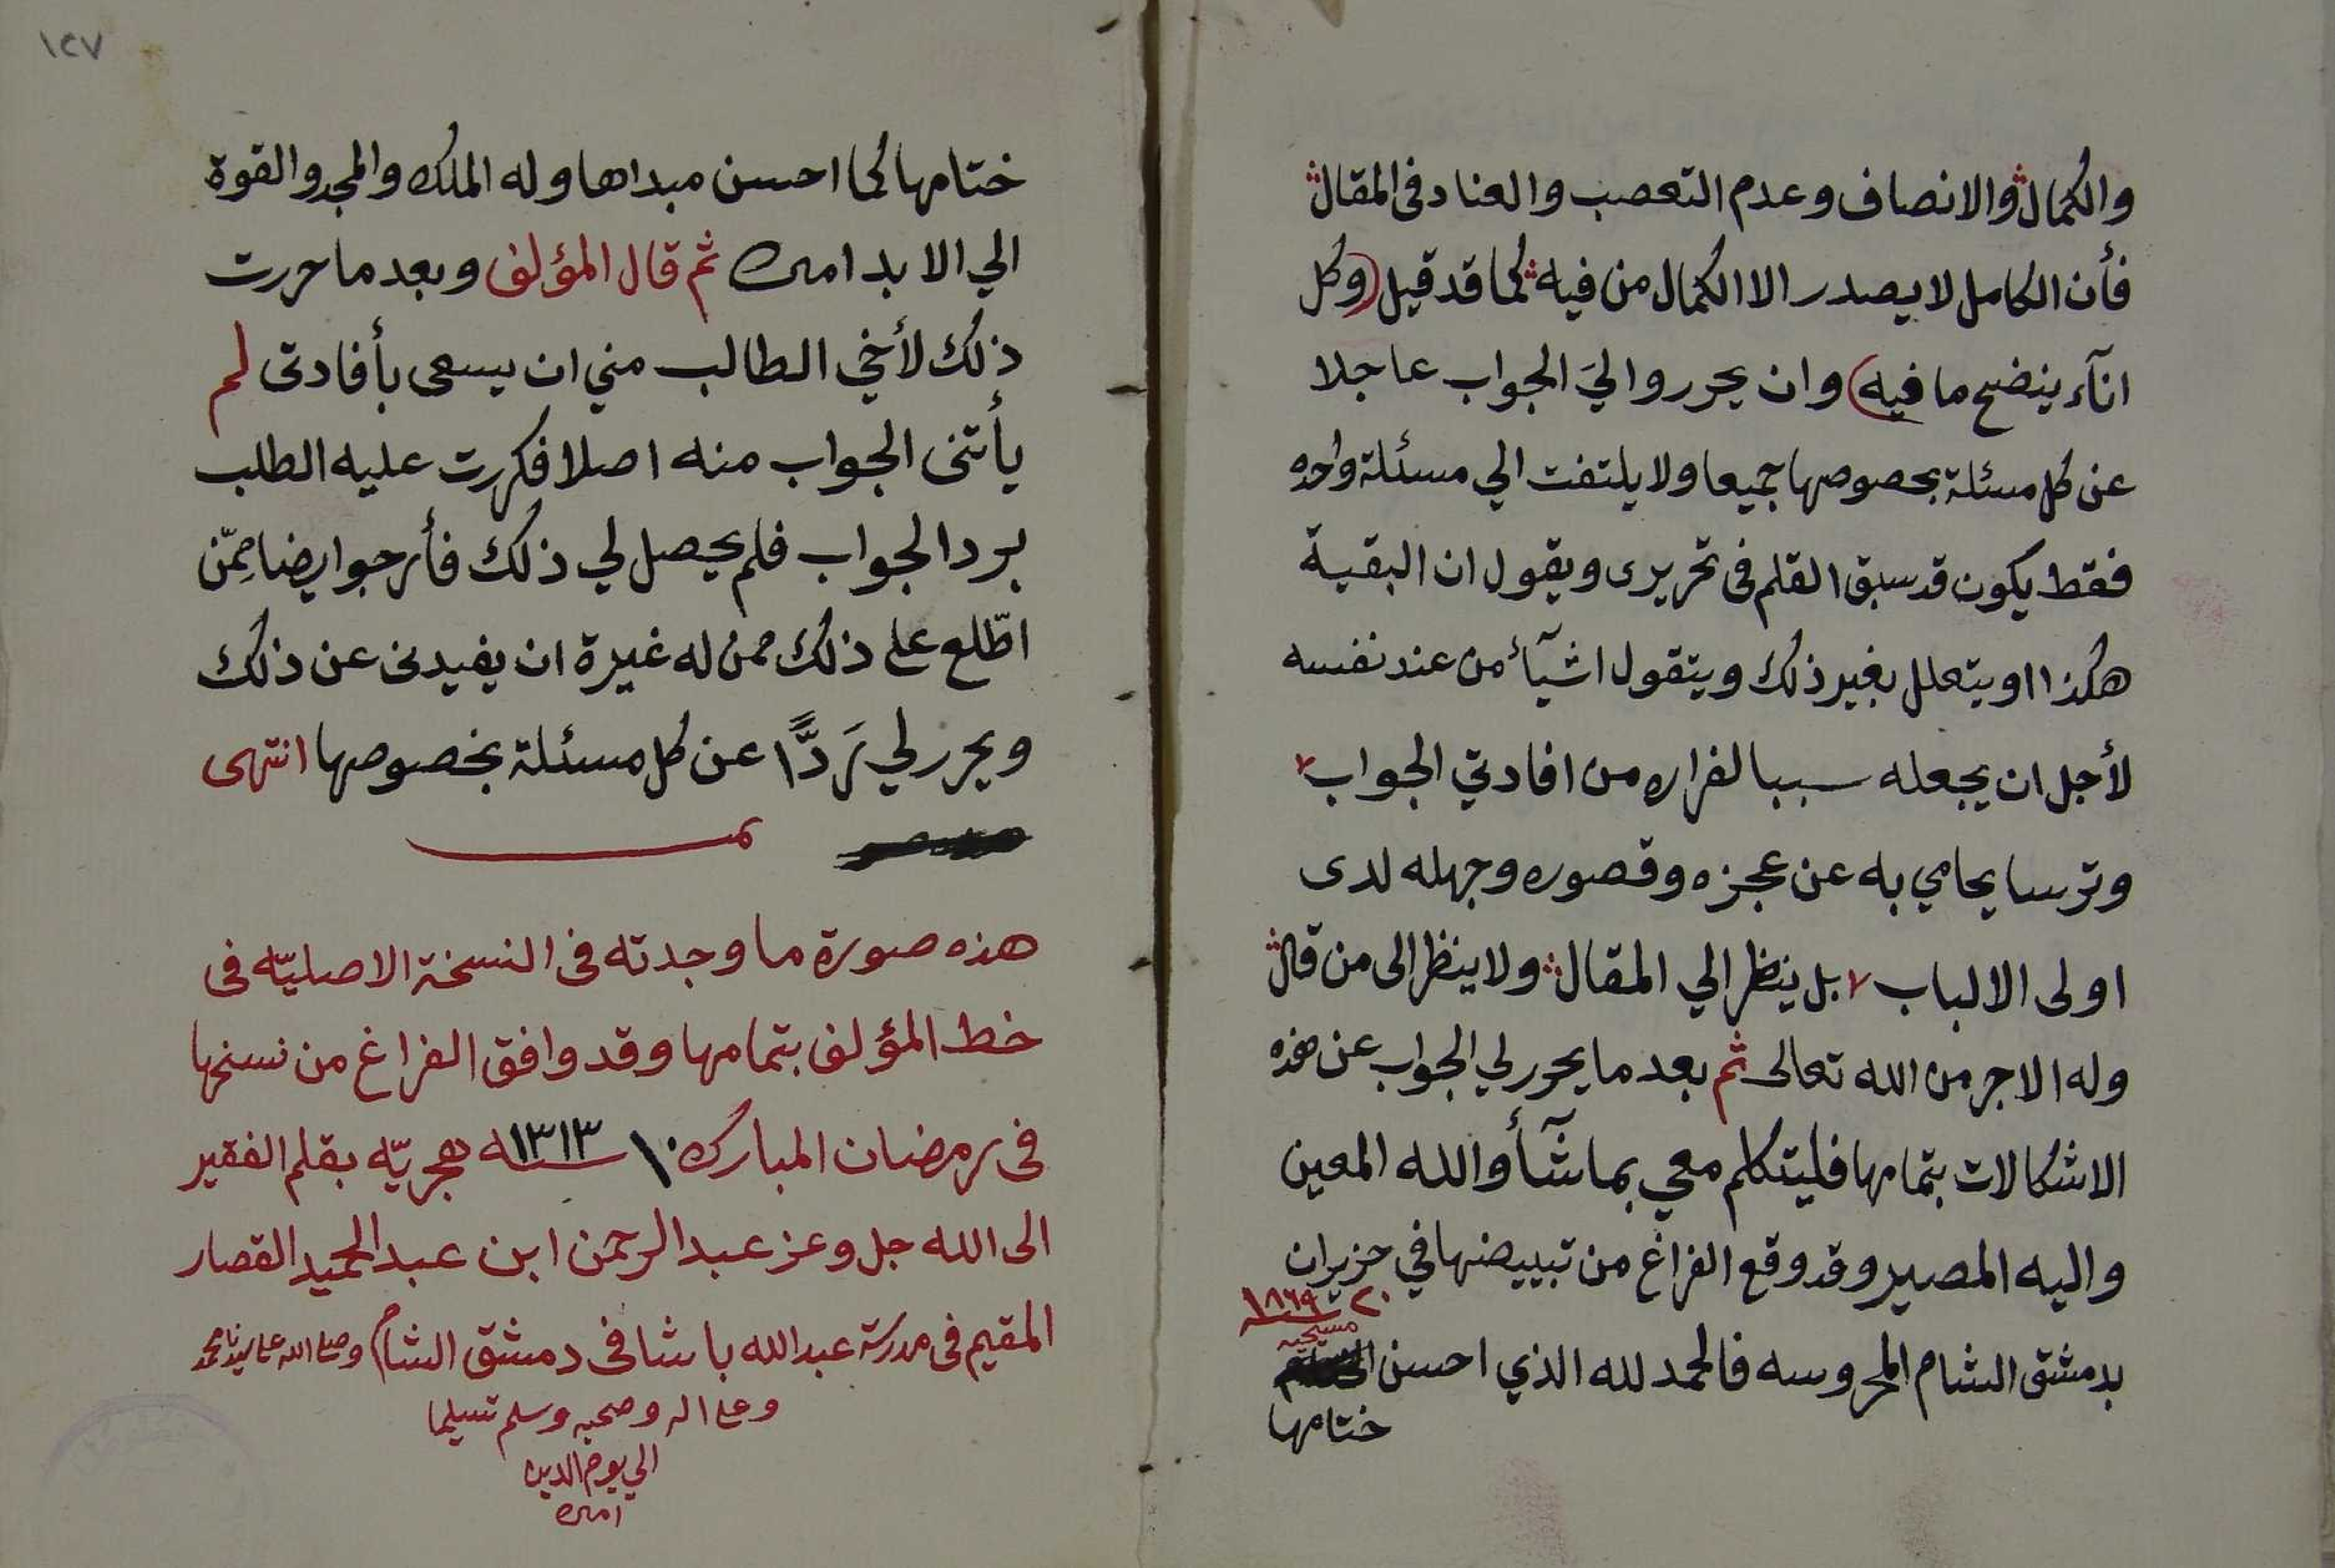 والكمال والانصاف وعدم التعصب والعناد فى المقال
فأن الكامل لا يصدر الا الكمال من فيه كما قد قيل (وكل
انآء ينضح ما فيه) وان يحرروا اليَ الجواب عاجلا
عن كل مسئلة بخصوصها جميعا ولا يلتفت الي مسئلة واحده
فقط يكون قد سبق القلم فى تحريرى ويقول ان البقية
هكذا او يتعلل بغير ذلك ويتقول اشيآء من عند نفسه
لأجل ان يجعله سببا لفراره من افادتي الجواب
وترسا يحامي به عن عجزه وقصوره وجهله لدى
اولى الالباب بل ينظر الي المقال ولا ينظر الى من قال
وله الاجر من الله تعالى ثم بعد ما يحرر لي الجواب عن هذه
الاشكالات بتمامها فليتكلم معي بما شآأ والله المعين
واليه المصير وقد وقع الفراغ من تبييضها في حزيران
٢٠ سنة ١٨٦٩
مسيحيه
بدمشق الشام المحروسه فالحمد لله الذي احسن
ختامها
١٢٧
ختامها كما احسن مبداها وله الملك والمجد والقوة
الي الابد امين ثم قال المؤلف وبعد ما حررت
ذلك لأخي الطالب مني ان يسعى بأفادتى لم
يأتنى الجواب منه اصلا فكررت عليه الطلب
برد الجواب فلم يحصل لي ذلك فأرجوا يضا ممّن
اطّلع على ذلك ممن له غيرة ان يفيدنى عن ذلك
ويحرر لي رَدًّا عن كل مسئلة بخصوصها انتهى
تمـــ
هذه صورة ما وجدته فى النسخة الاصليّه فى
خط المؤلف بتمامها وقد وافق الفراغ من نسخها
فى رمضان المبارك ١٠ سنة ١٣١٣ هجريّه بقلم الفقير
الى الله جل وعز عبد الرحمن ابن عبد الحميد القصار
المقيم فى مدرسة عبد الله باشا فى دمشق الشام وصلى الله على سيدنا محمد
وعلى اله وصحبه وسلم تسليما
الي يوم الدين
امين